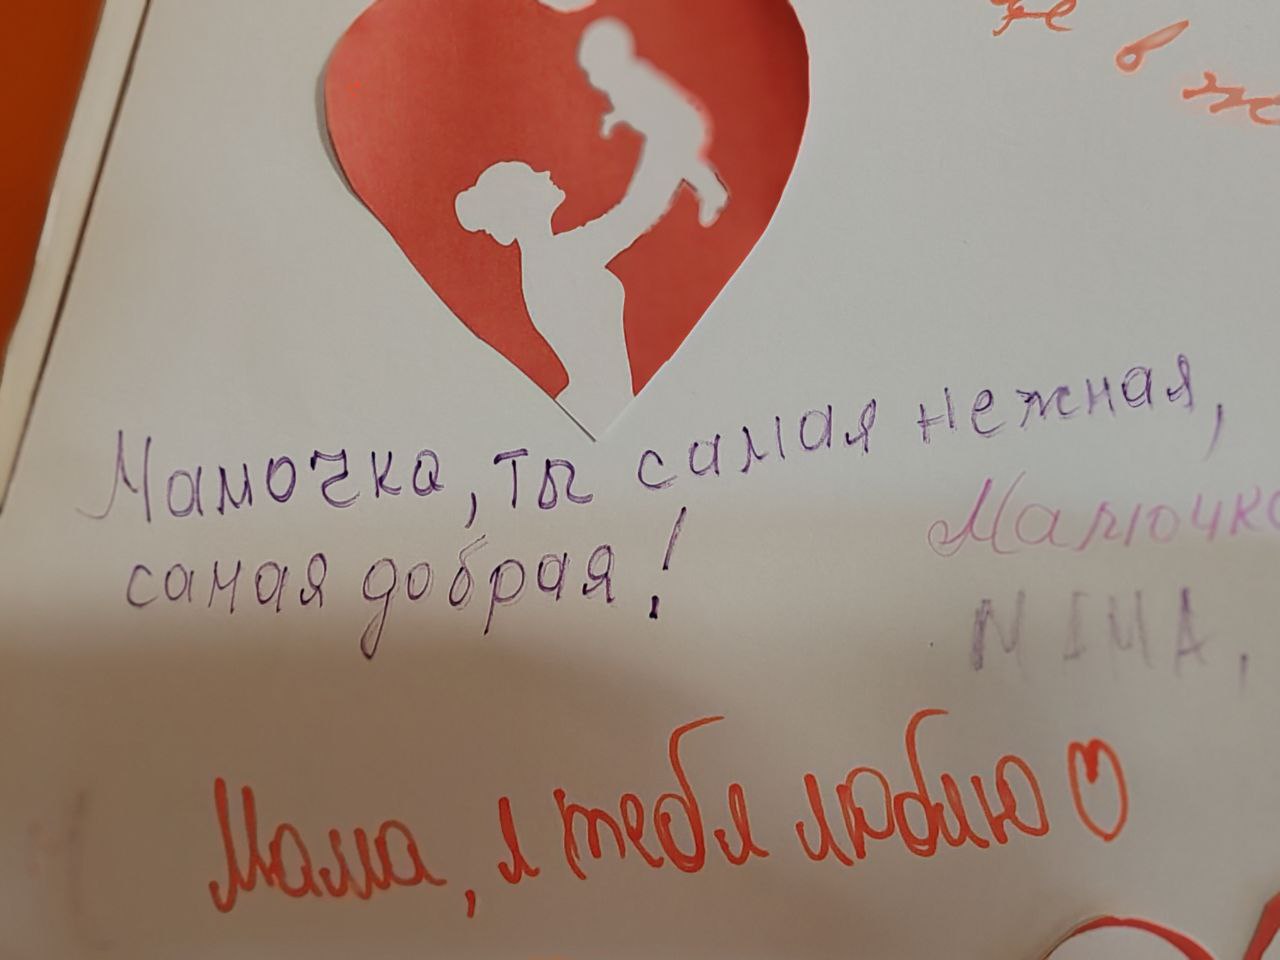 в
Мамочка, ты самая нежная,
самая добрая!
Мамочка
МАМА,
Мама, я тебя люблю